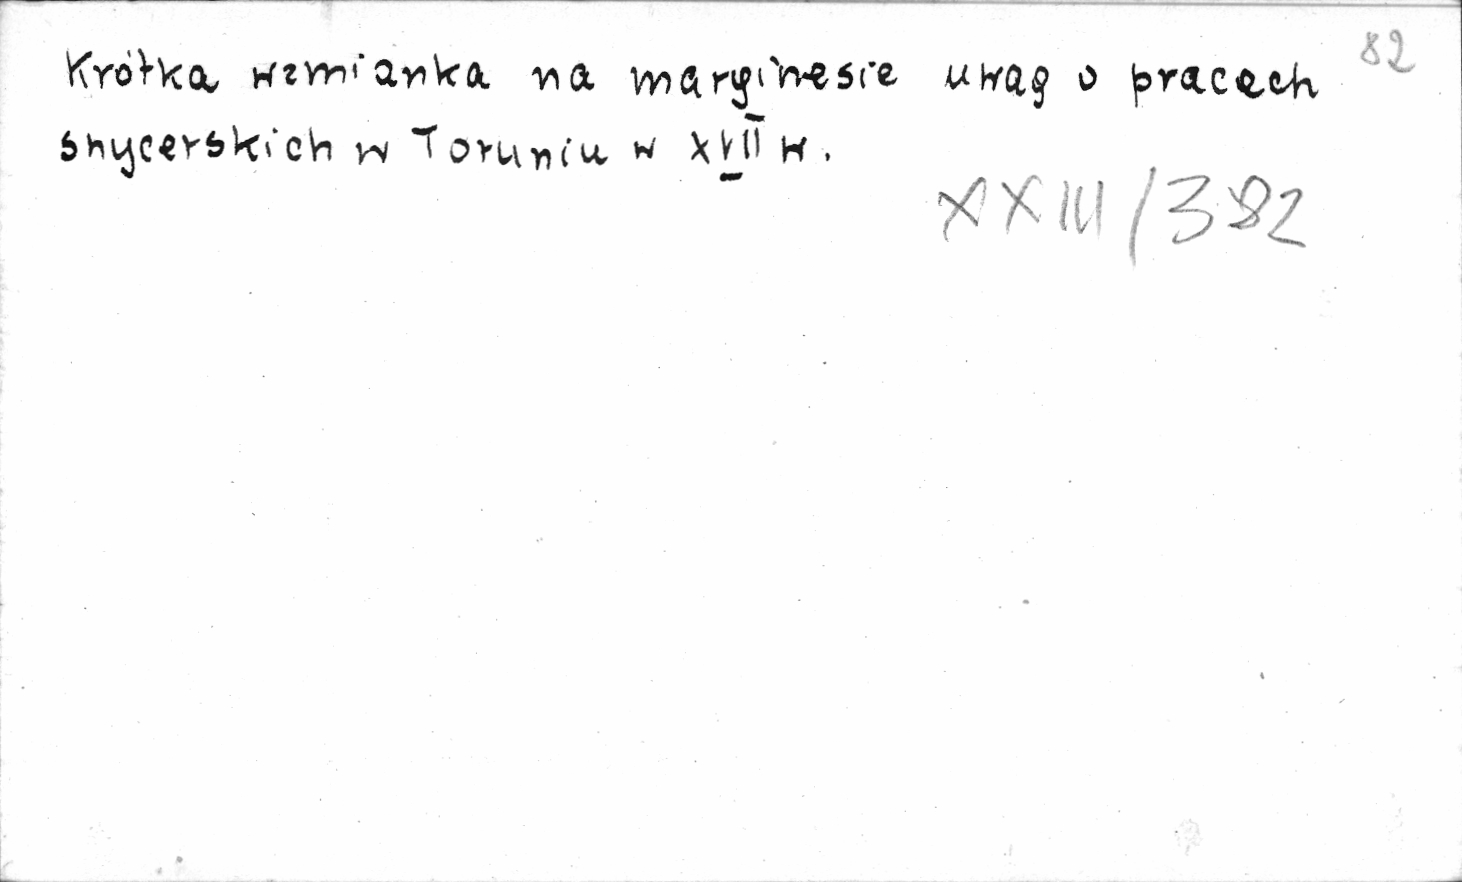 82
Krótka wzmianka na marginesie uwag o pracach
snycerskich w Toruniu w XVII w.
XXIII/382